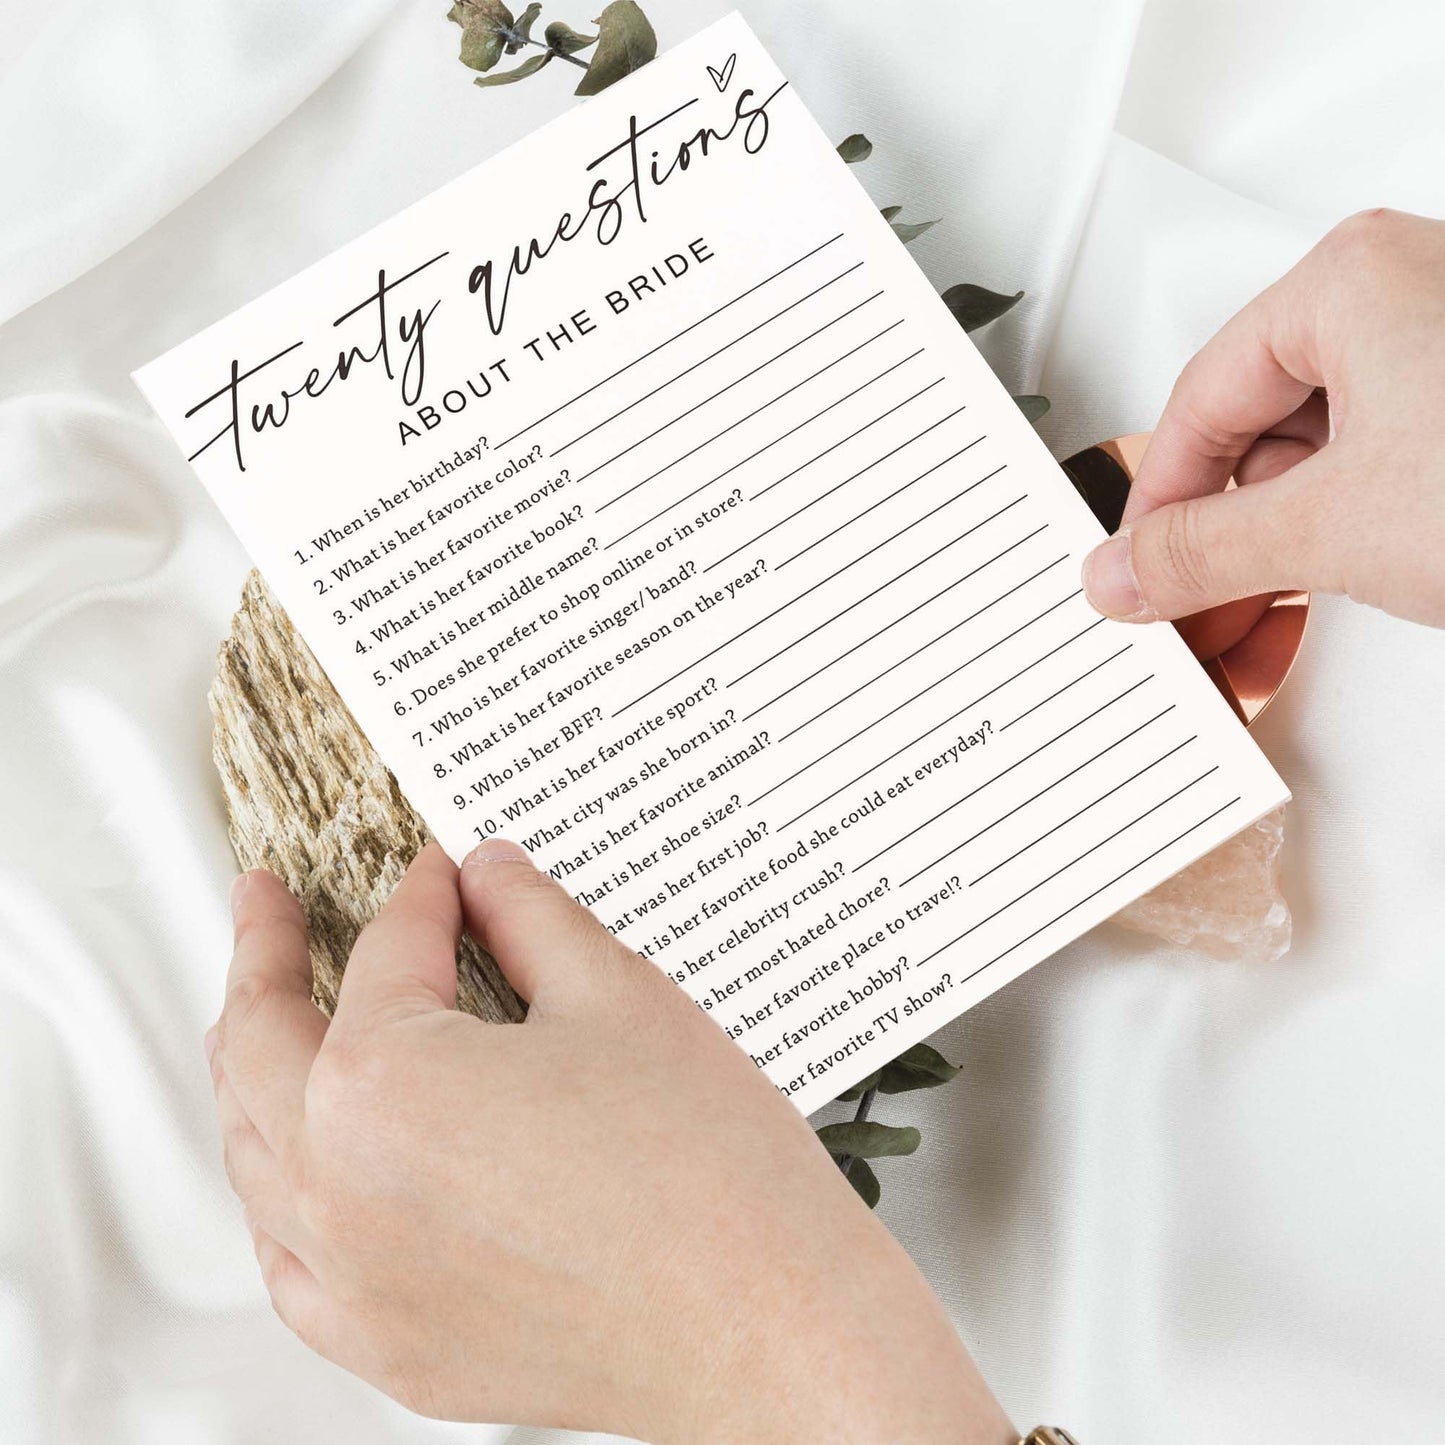 twenty questions
ABOUT THE BRIDE
1. When is her birthday?
2. What is her favorite color?
3. What is her favorite movie?
4. What is her favorite book?
5. What is her middle name?
6. Does she prefer to shop online or in store?
7. Who is her favorite singer/ band?
8. What is her favorite season on the year?
9. Who is her BFF?
10. What is her favorite sport?
What city was she born in?
What is her favorite animal?
is her shoe size?
was her first job?
is her favorite food she could eat everyday?
is her celebrity crush?
is her most hated chore?
is her favorite place to travel!?
her favorite hobby?
her favorite TV show?